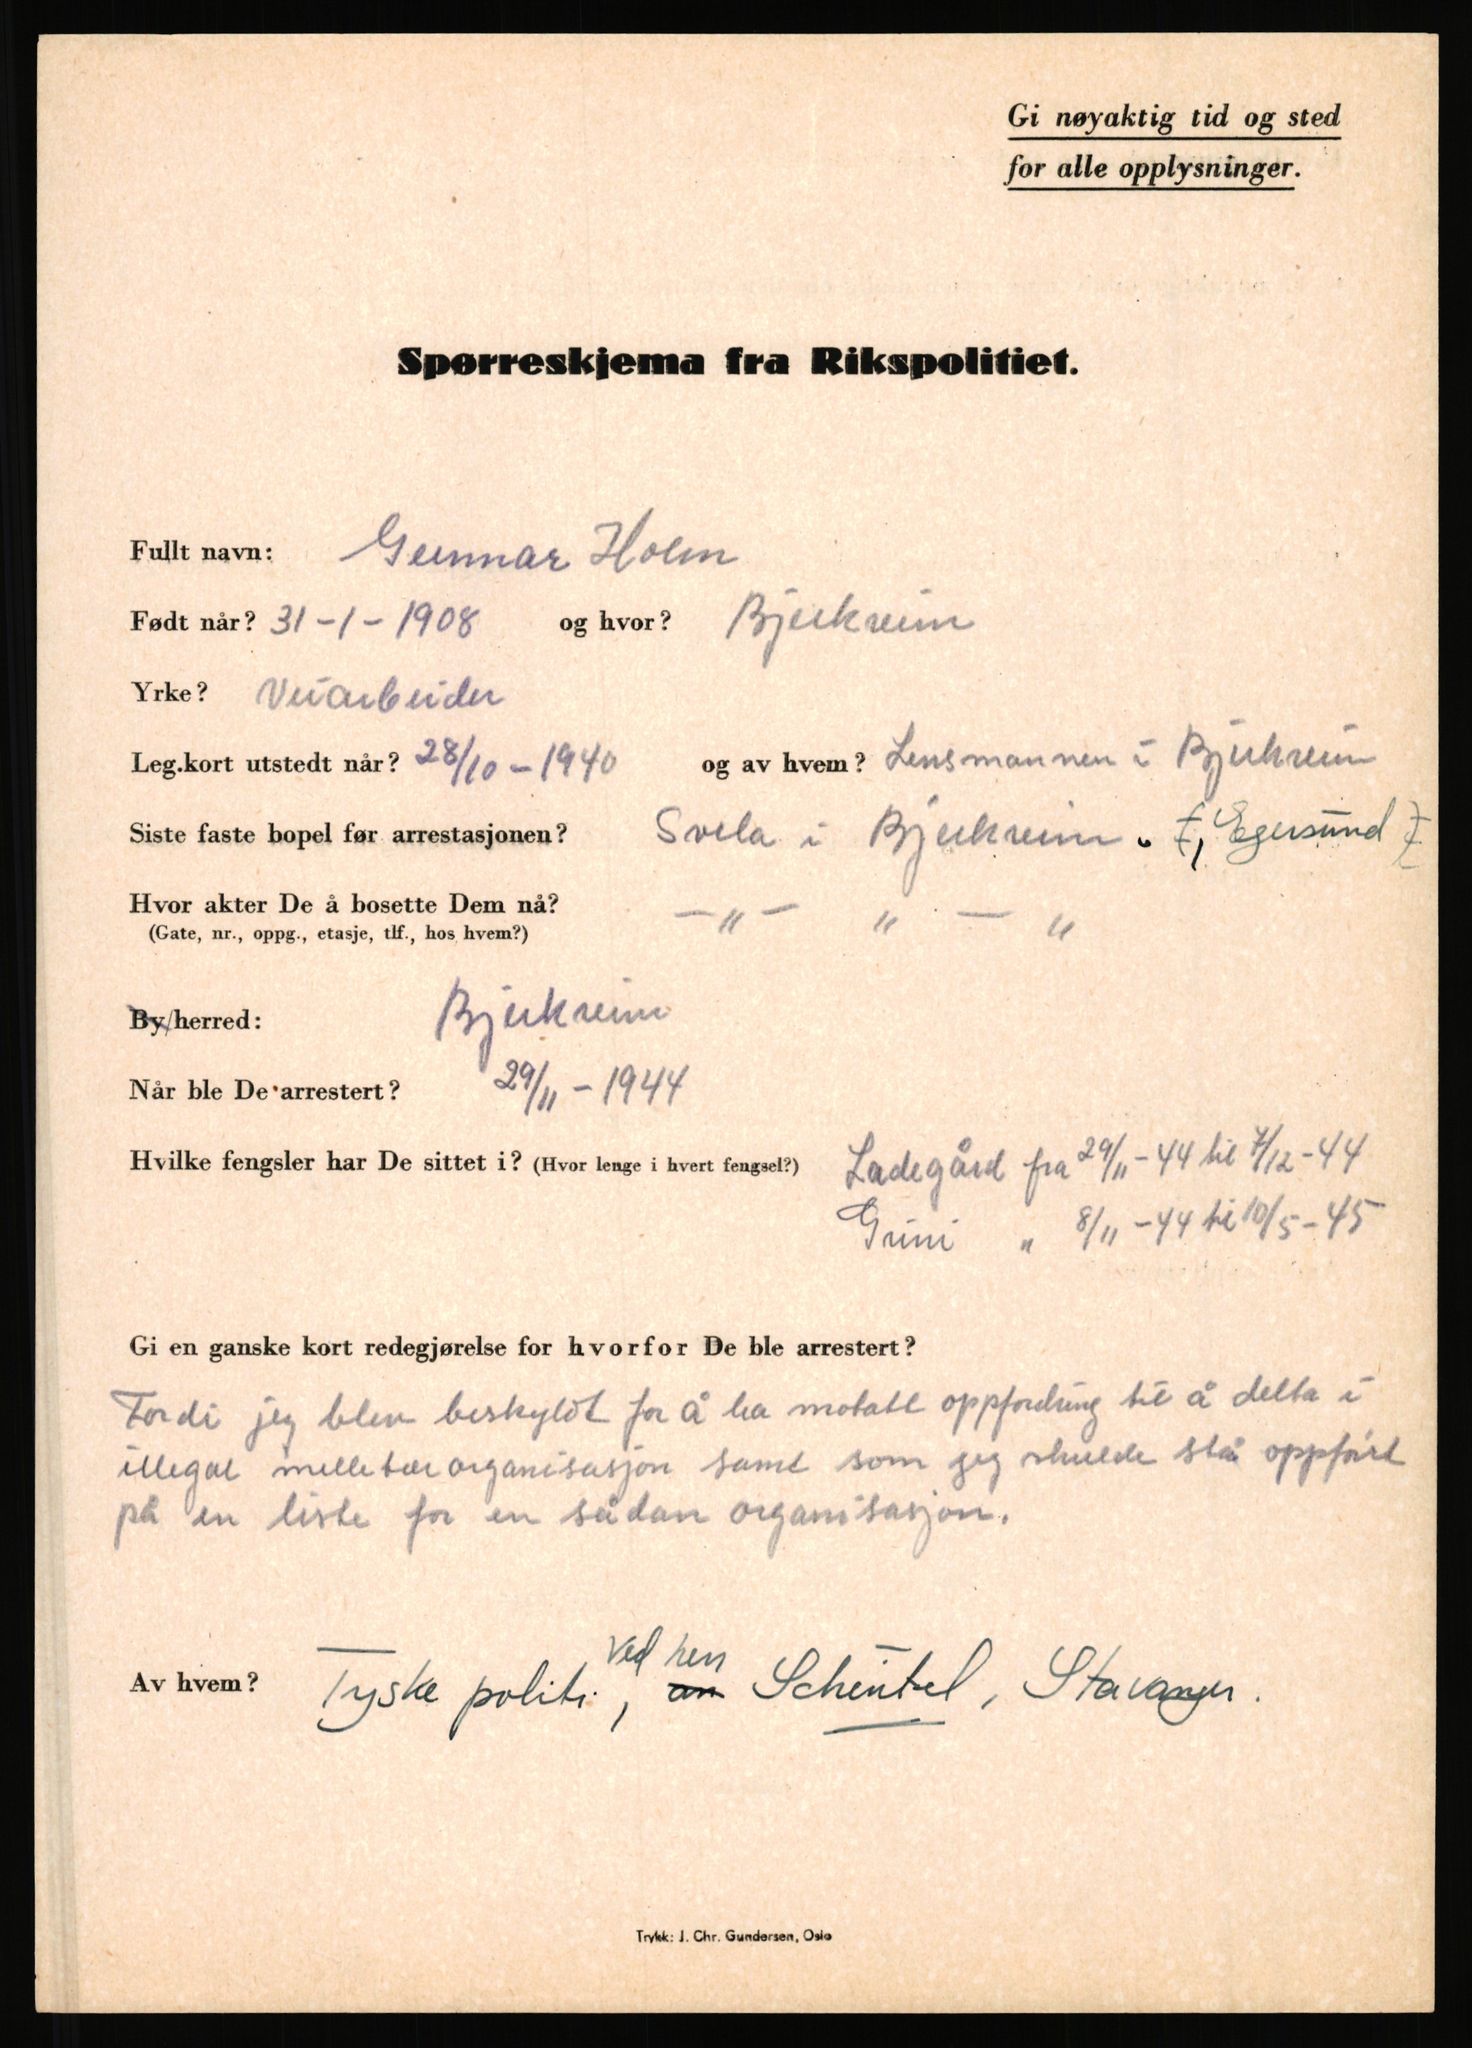 Gi nøyaktig tid og sted
for alle opplysninger.
Spørreskjema fra Rikspolitiet.
Fullt navn: Gunnar Holm
Født når? 31-1-1908 og hvor? Bjerkreim
Yrke? Veiarbeider
Leg.kort utstedt når? 28/10-1940 og av hvem? Lensmannen i Bjerkreim
Siste faste bopel før arrestasjonen? Svela i Bjerkreim. , Egersund
Hvor akter De å bosette Dem nå? -„- „ - „
(Gate, nr., oppg., etasje, tlf., hos hvem?)
By/herred: Bjerkreim
Når ble De arrestert? 29/11-1944
Hvilke fengsler har De sittet i? (Hvor lenge i hvert fengsel?) Ladegård fra 29/11-44 til 7/12-44
Grini „ 8/11-44 til 10/5-45
Gi en ganske kort redegjørelse for hvorfor De ble arrestert?
Fordi jeg blev beskyldt for å ha motatt oppfordring til å delta i
illegal milletærorganisasjon samt som jeg skulde stå oppført
på en liste for en sådan organisasjon.
Av hvem? Tyske politi, ved herr Stavanger.
Trykk: J. Chr. Gundersen, Oslo